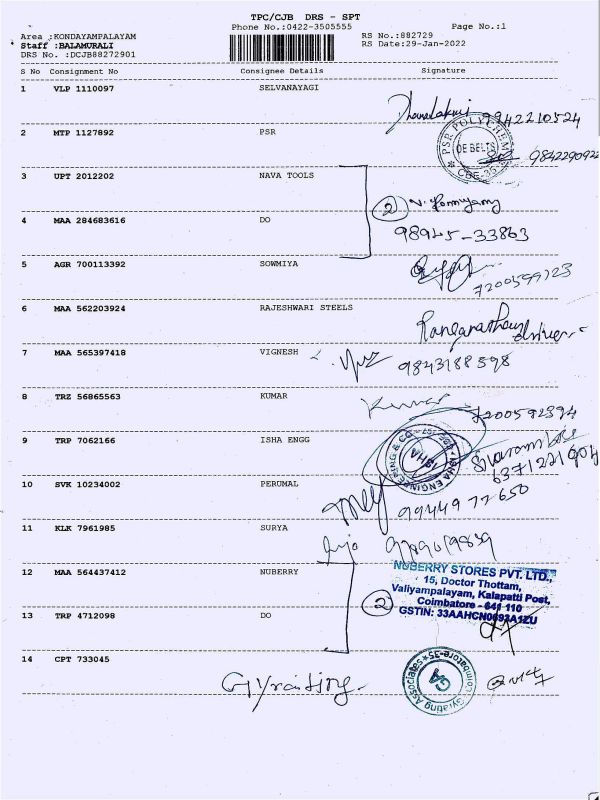 TPC/CJB DRS - SPT
Phone No.:0422-3505555
Page No.:1
Area :KONDAYAMPALAYAM
RS No.:882729
Staff :BALAMURALI
RS Date:29-Jan-2022
DRS No. :DCJB88272901
S No Consignment No Consignee Details Signature
1 VLP 1110097 SELVANAYAGI
Dhanalakmi 9942210524
2 MTP 1127892 PSR
PSR POLYCHEM
OE BELTS
CBE-35
3 UPT 2012202 NAVA TOOLS
2
4 MAA 284683616 DO
98945-33863
5 AGR 700113392 SOWMIYA
7200599123
6 MAA 562203924 RAJESHWARI STEELS
driver
7 MAA 565397418 VIGNESH
9843188598
8 TRZ 56865563 KUMAR
Kumar 7200592394
9 TRP 7062166 ISHA ENGG
ISHA ENGINEERING & CO
ISHA
6371221904
10 SVK 10234002 PERUMAL
9944977650
11 KLK 7961985 SURYA
12 MAA 564437412 NUBERRY
NUBERRY STORES PVT. LTD.,
15, Doctor Thottam,
Valiyampalayam, Kalapatti Post,
Coimbatore - 641 110
GSTIN: 33AAHCN0693A1ZU
2
13 TRP 4712098 DO
14 CPT 733045
Gyrating
Gyrating Associates
Coimbatore-35
GA